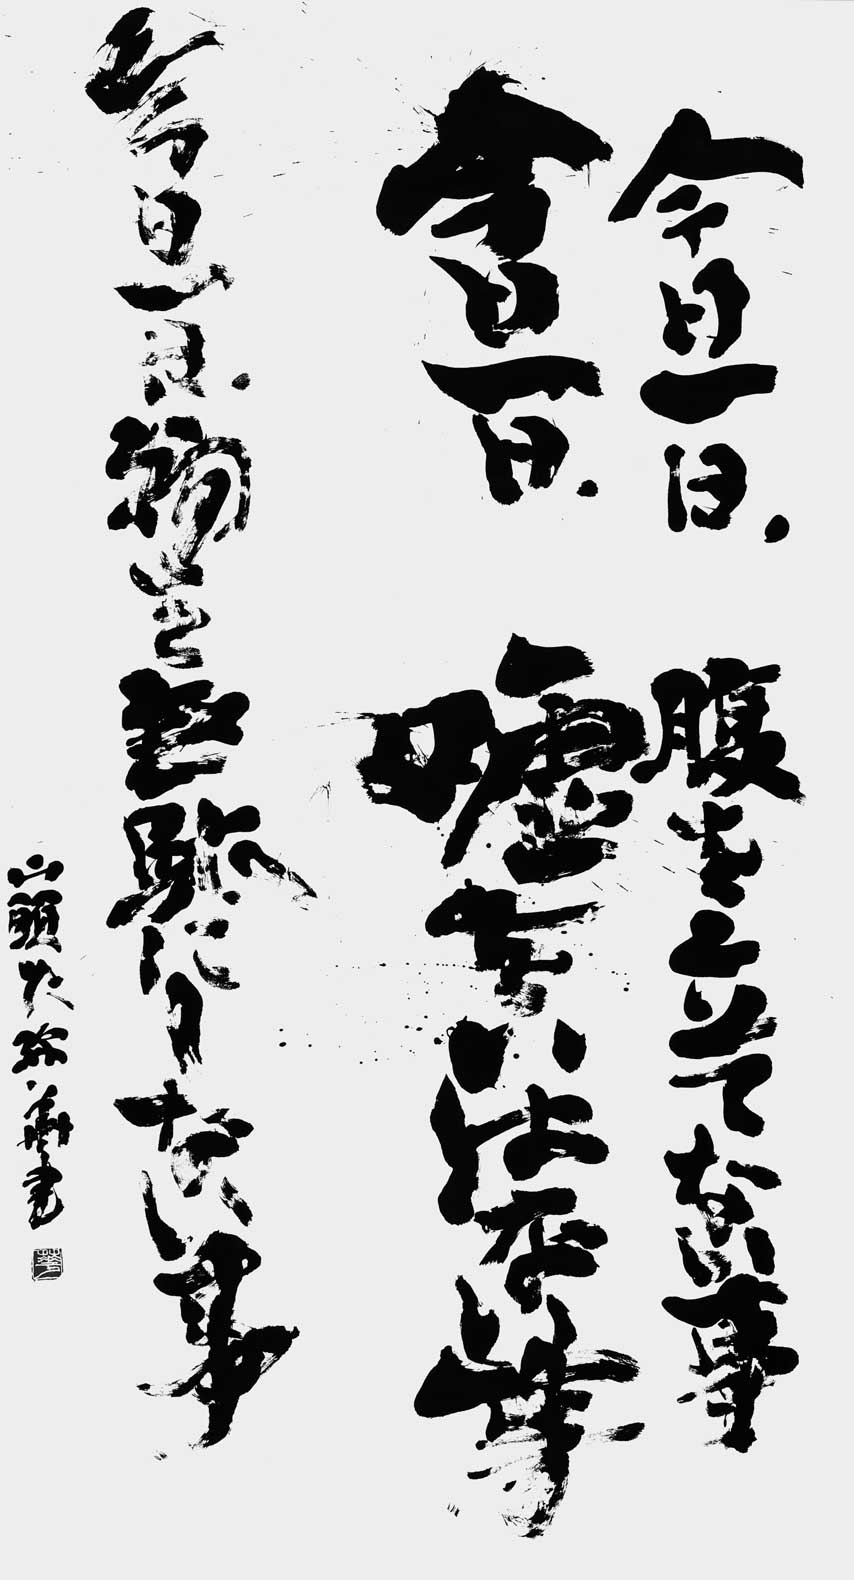 今日一日、腹を立てない事
今日一日、嘘をいはない事
今日一日、物を無駄にしない事
山頭火 華書